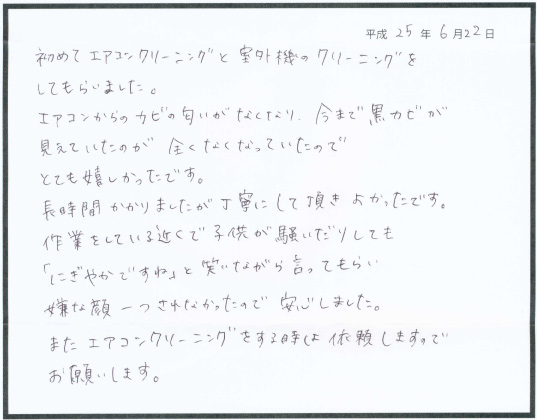 平成 25 年 6 月 22 日
初めて エアコンクリーニングと 室外機の クリーニングを
してもらいました。
エアコンからの カビの匂いが なくなり、今まで 黒カビが
見えていたのが 全くなくなっていたので
とても嬉しかったです。
長時間 かかりましたが 丁寧にして頂き よかったです。
作業をしている近くで 子供が 騒いだりしても
「にぎやかですね」と 笑いながら 言ってもらい
嫌な顔 一つされなかったので 安心しました。
また エアコンクリーニングをする時は 依頼しますので
お願いします。